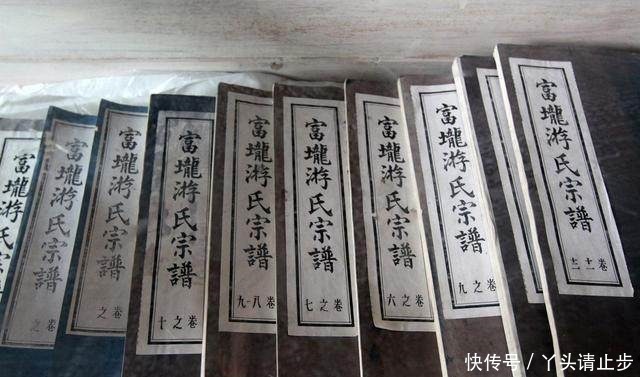 富壠游氏宗
富壠游氏宗譜
卷之
富壠游氏宗譜
卷之
富壠游氏宗譜
卷之十
富壠游氏宗譜
卷八·九
富壠游氏宗譜
卷之七
富壠游氏宗譜
卷之六
富壠游氏宗譜
卷之九
富壠游氏宗譜
卷十一十二
快传号/丫头请止步